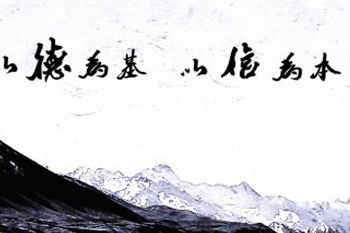 以德为基 以信为本